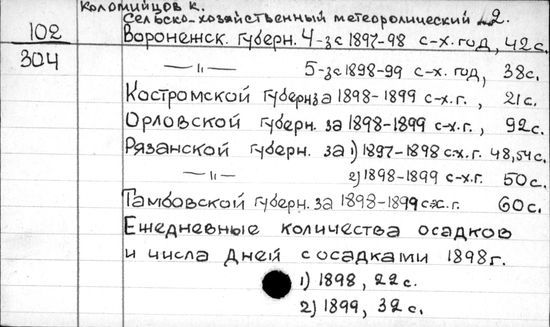 Коломийцов К.
Сельско-хозяйственный метеоролический 2.
102 Воронежск. губерн. 4-з с 1897-98 с-х. год, 42с.
304 —"— 5-з с 1898-99 с-х. год, 38с.
Костромской губерн за 1898-1899 с-х.г., 21с.
Орловской губерн. за 1898-1899 с-х.г., 92с.
Рязанской губерн. за 1) 1897-1898 с.х.г. 48,54с.
—"— 2) 1898-1899 с-х.г. 50с.
Тамбовской губерн. за 1898-1899 с.х.г. 60с.
Ежедневные количества осадков
и числа дней с осадками 1898г.
1) 1898, 22с.
2) 1899, 32с.